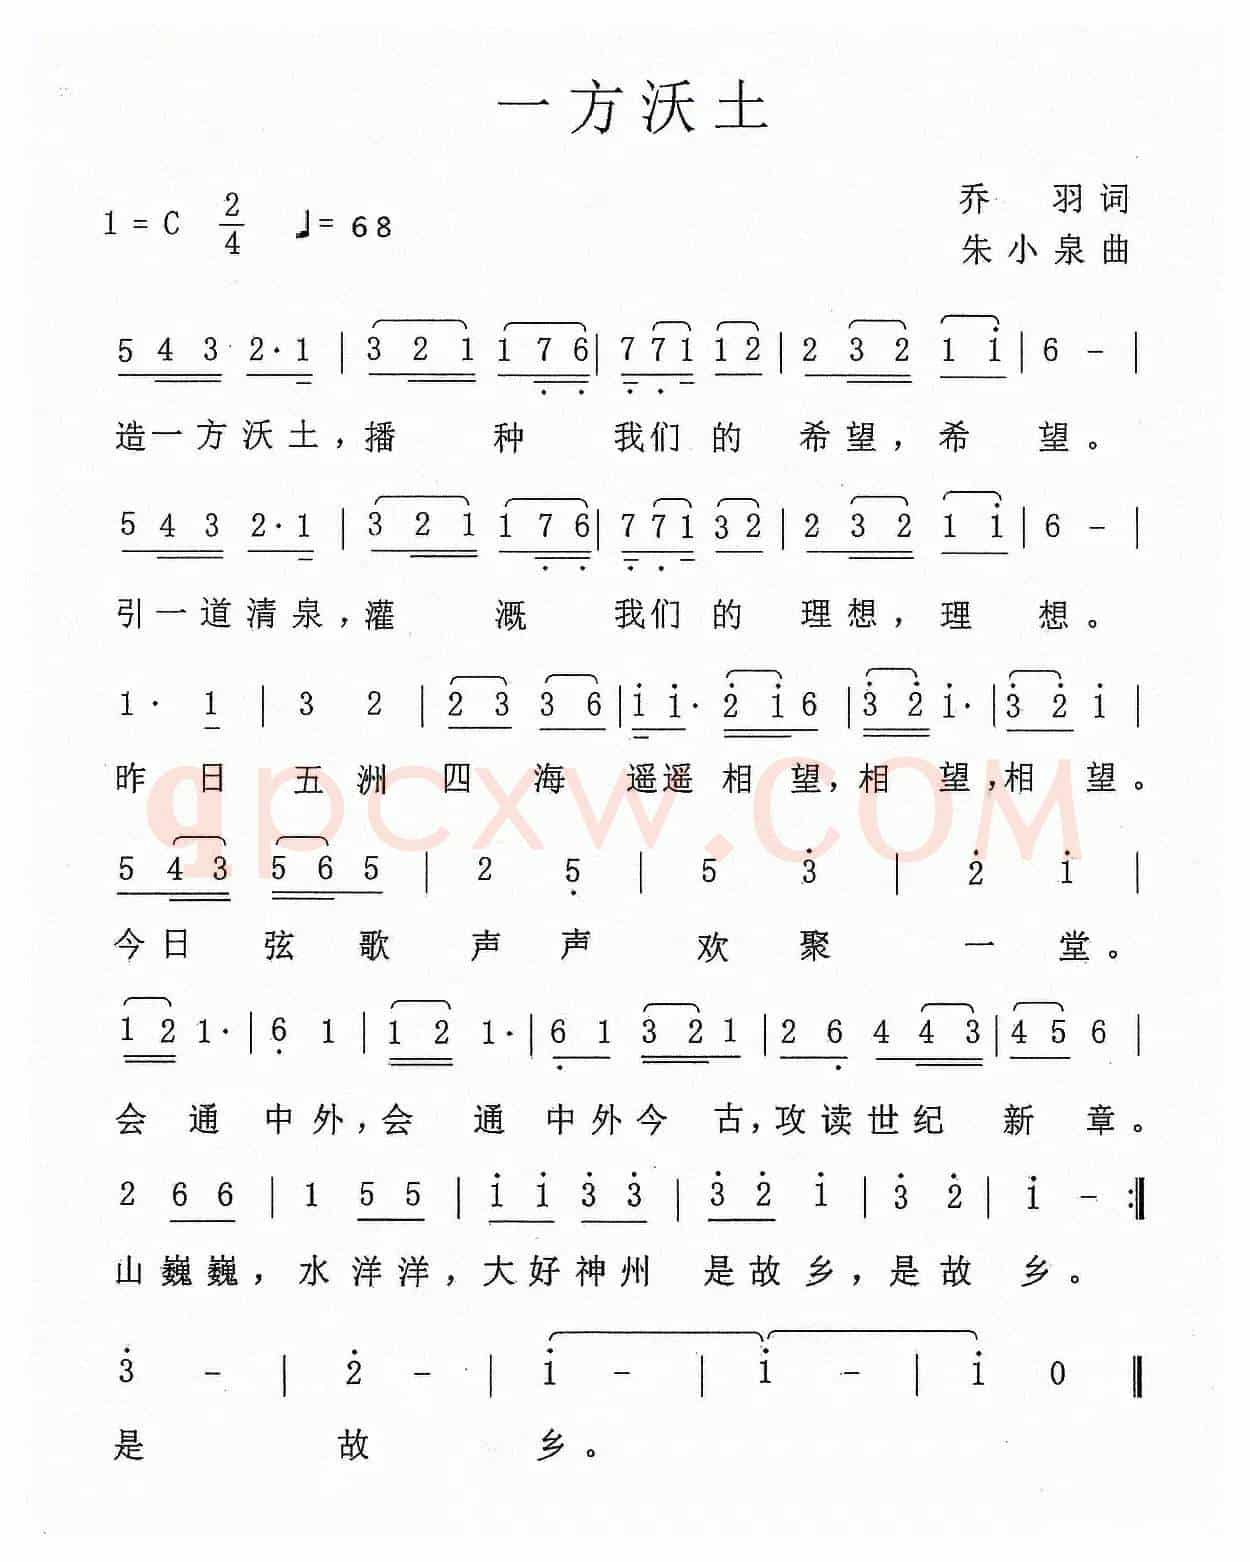 一方沃土
乔 羽词
1=C 2/4 ♩=68
朱小泉曲
5 4 3 2· 1 | 3 2 1 1 7̣ 6̣ | 7̣ 7̣ 1 1 2 | 2 3 2 1 i̇ | 6 - |
造一方沃土,播 种 我们的 希望,希 望。
5 4 3 2· 1 | 3 2 1 1 7̣ 6̣ | 7̣ 7̣ 1 3 2 | 2 3 2 1 i̇ | 6 - |
引一道清泉,灌 溉 我们的 理想,理 想。
1· 1 | 3 2 | 2 3 3 6 | 1̇ 1̇· 2̇ 1̇ 6 | 3̇ 2̇ 1̇· | 3̇ 2̇ 1̇ |
昨 日 五洲四海 遥遥相望,相 望,相 望。
qpcxw.COM
5 4 3 5 6 5 | 2 5̣ | 5 3̇ | 2̇ 1̇ |
今日 弦歌 声声 欢聚 一堂。
1 2 1· | 6̣ 1 | 1 2 1· | 6̣ 1 3 2 1 | 2 6̣ 4 4 3 | 4 5 6 |
会 通 中外,会 通 中外今 古,攻读世纪 新 章。
2 6 6 | 1 5 5 | 1̇ 1̇ 3̇ 3̇ | 3̇ 2̇ 1̇ | 3̇ 2̇ | 1̇ - :‖
山巍巍,水洋洋,大好神州 是故乡,是故 乡。
3̇ - | 2̇ - | 1̇ - | 1̇ - | 1̇ 0 ‖
是 故 乡。